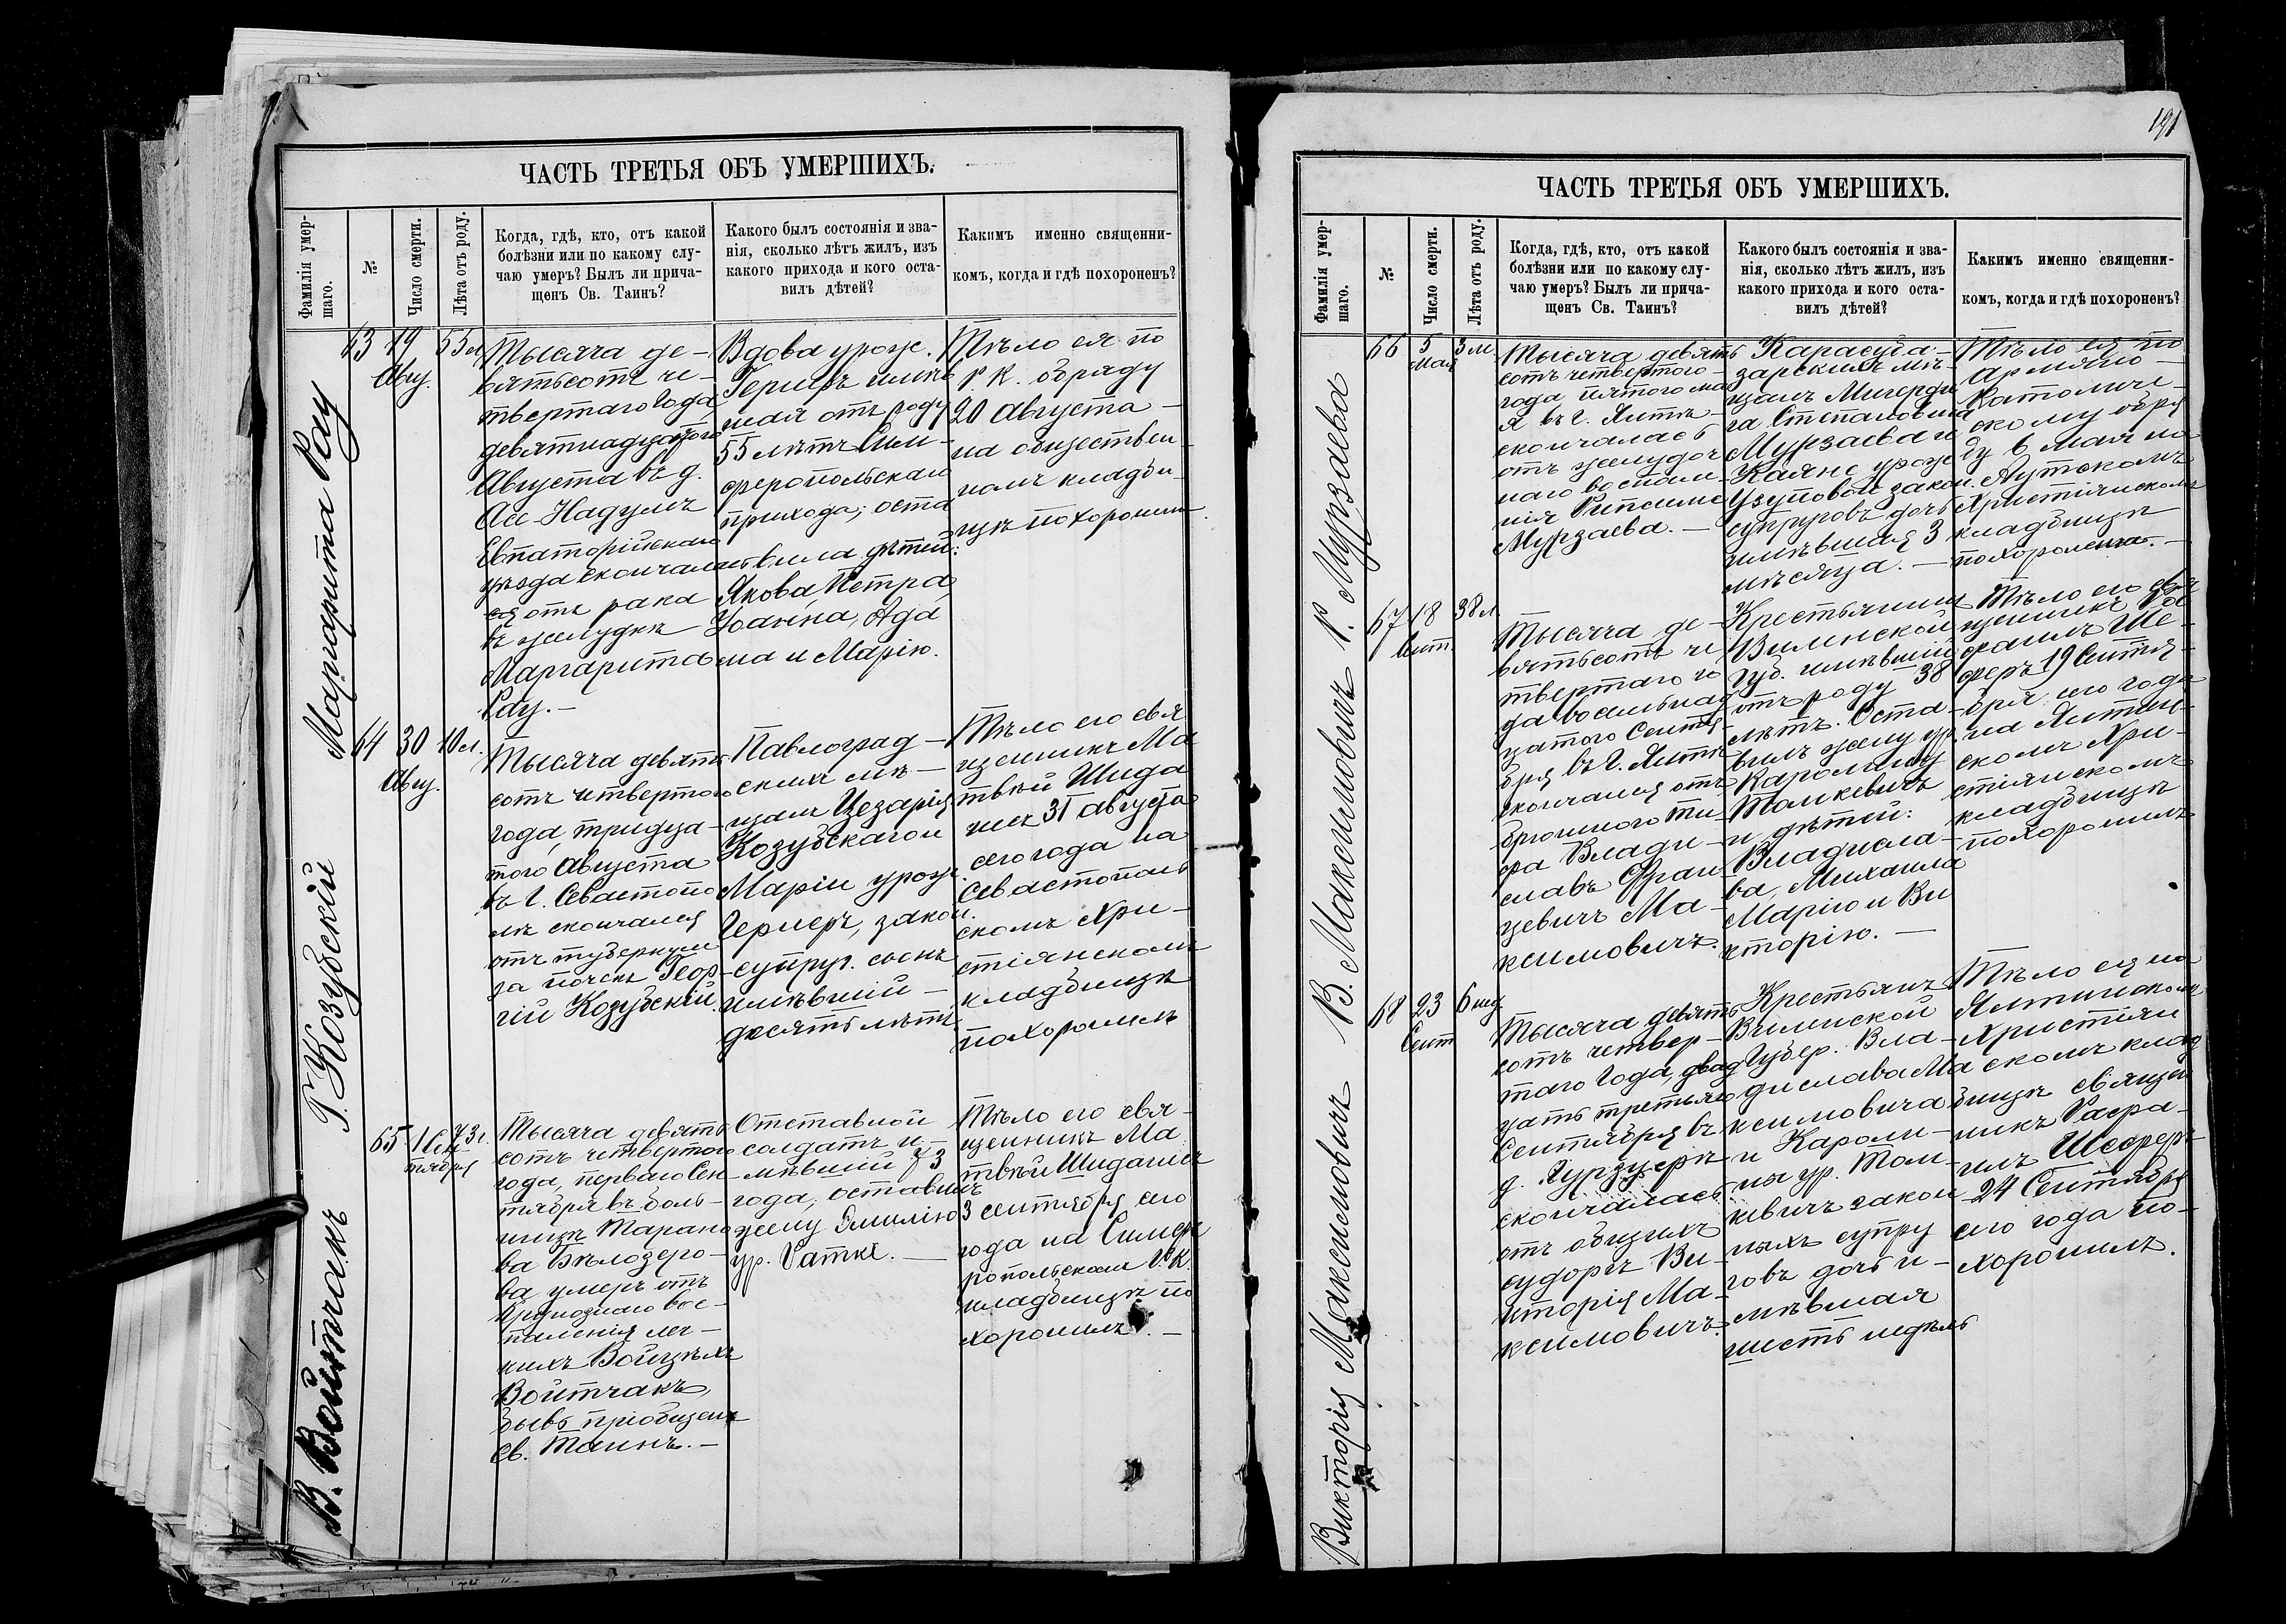 ЧАСТЬ ТРЕТЬЯ ОБЪ УМЕРШИХЪ.
Фамилія умер-
шаго.
№
Число смерти.
Лѣта отъ роду.
Когда, гдѣ, кто, отъ какой
болѣзни или по какому слу-
чаю умеръ? Былъ ли прича-
щенъ Св. Таинъ?
Какого былъ состоянія и зва-
нія, сколько лѣтъ жилъ, изъ
какого прихода и кого оста-
вилъ дѣтей?
Какимъ именно священни-
комъ, когда и гдѣ похороненъ?
Маргарита Рау
63
19
Авгу.
55 л.
Тысяча де-
вятьсотъ че-
твертаго года,
девятнадцатого
Августа въ д.
Асс-Надумъ
Евпаторійскаго
уѣзда скончалас
ся отъ рака
въ желудкѣ
Маргарита
Рау. —
Вдова урож.
Гернеръ имѣв
шая отъ роду
55 лѣтъ Сим-
феропольскаго
прихода; оста
вила дѣтей:
Якова, Петра,
Іоанна, Ада
ма и Марію.
Тѣло ея по
Р К. обряду
20 Августа —
на обществен
номъ кладби
щѣ похоронен.
Г. Козубскій
64
30
Авгу.
10 л.
Тысяча девять
сотъ четвертого
года, тридца-
того Августа
въ г. Севастопо
лѣ скончался
отъ туберкуле
за почекъ Геор-
гій Козубскій.
Павлоград —
скихъ мѣ —
щанъ Цезарія
Козубскаго и
Маріи урож.
Гернеръ, закон.
супруг. сынъ
имѣвшій —
десять лѣтъ.
Тѣло его свя
щенникъ Ма
твѣй Шида
гисъ 31 Августа
сего года на
Севастополь
скомъ Хри-
стіянскомъ
кладбищѣ
похоронилъ
В. Войтчакъ
65
1 Сен
тября
73 г.
Тысяча девять
сотъ четвертого
года, перваго Сен-
тября въ боль-
ницѣ Тарано
ва Бѣлозеро-
ва умеръ отъ
Крупознаго вос-
паленія лег —
кихъ Войцѣхъ
Войтчакъ,
бывъ пріобщенъ
Св. Таинъ. —
Отставной
солдатъ и-
мѣвшій 73
года, оставилъ
жену Эмилію
ур. Ратке. —
Тѣло его свя-
щенникъ Ма
твѣй Шидагисъ
3 сентября сего
года на Симфе
ропольскомъ Р. К.
кладбищѣ по
хоронилъ. —
191
ЧАСТЬ ТРЕТЬЯ ОБЪ УМЕРШИХЪ.
Фамилія умер-
шаго.
№
Число смерти.
Лѣта отъ роду.
Когда, гдѣ, кто, отъ какой
болѣзни или по какому слу-
чаю умеръ? Былъ ли прича-
щенъ Св. Таинъ?
Какого былъ состоянія и зва-
нія, сколько лѣтъ жилъ, изъ
какого прихода и кого оста-
вилъ дѣтей?
Какимъ именно священни-
комъ, когда и гдѣ похороненъ?
Р. Мурзаева
66
5
Мая
3 м.
Тысяча девять
сотъ четвертого —
года, пятого ма
я въ г. Ялтѣ —
скончалась
отъ желудоч
наго воспале-
нія Рипсиме
Мурзаева. —
Карасуба-
зарскихъ мѣ-
щанъ Мигерди
ча Степановича
Мурзаева и
Каяне урож
Узуновой закон.
супруговъ дочь
имѣвшая 3
мѣсяца. —
Тѣло ея по
Армяно —
Католиче —
скому обря
ду 6 мая на
Аутскомъ
Христіянскомъ
кладбищѣ
похоронена. —
В. Максимовичъ
67
18
Сент.
38 л.
Тысяча де-
вятьсотъ че
твертаго го
да восемнад
цатого Сентя-
бря въ г. Ялтѣ
скончался отъ
брюшного ти-
фа Влади-
славъ Фран-
цевичъ Ма-
ксимовичъ.
Крестьянинъ
Виленской
губ. имѣвшій
отъ роду 38
лѣтъ. Оста-
вилъ жену ур.
Каролину
Томкевичъ
и дѣтей:
Владисла-
ва, Михаила
Марію и Ви
кторію. —
Тѣло его свя
щенникъ Ра
фаилъ Ше-
феръ 19 Сентя-
бря сего года
на Ялтин-
скомъ Хри-
стіянскомъ
кладбищѣ
похоронилъ
Викторія Максимовичъ
68
23
Сент
6 нед
Тысяча девять
сотъ четвер-
таго года, двад
цать третьяго
Сентября въ
д. Гурзуфѣ
скончалась
отъ общихъ
судоргъ Ви-
кторія Ма-
ксимовичъ.
Крестьянъ
Виленской
Губер. Вла-
дислава Ма
ксимовича
и Кароли-
ны ур. Том-
кевичъ закон
ныхъ супру
говъ дочь и-
мѣвшая
шесть недѣль
Тѣло ея на
Ялтинском
Христіян
скомъ клад
бищѣ священ
никъ Рафа-
илъ Шеферъ
24 Сентября
сего года по-
хоронилъ.